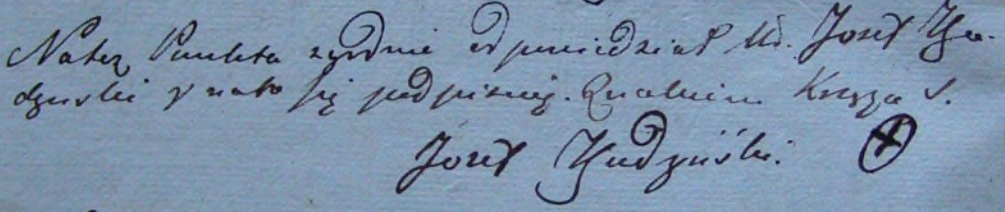 Na też Punkta zgodnie odpowiedział Ur. Jozef
dzyński y na to się podpisuię. Znakiem Krzyża S.
Jozef